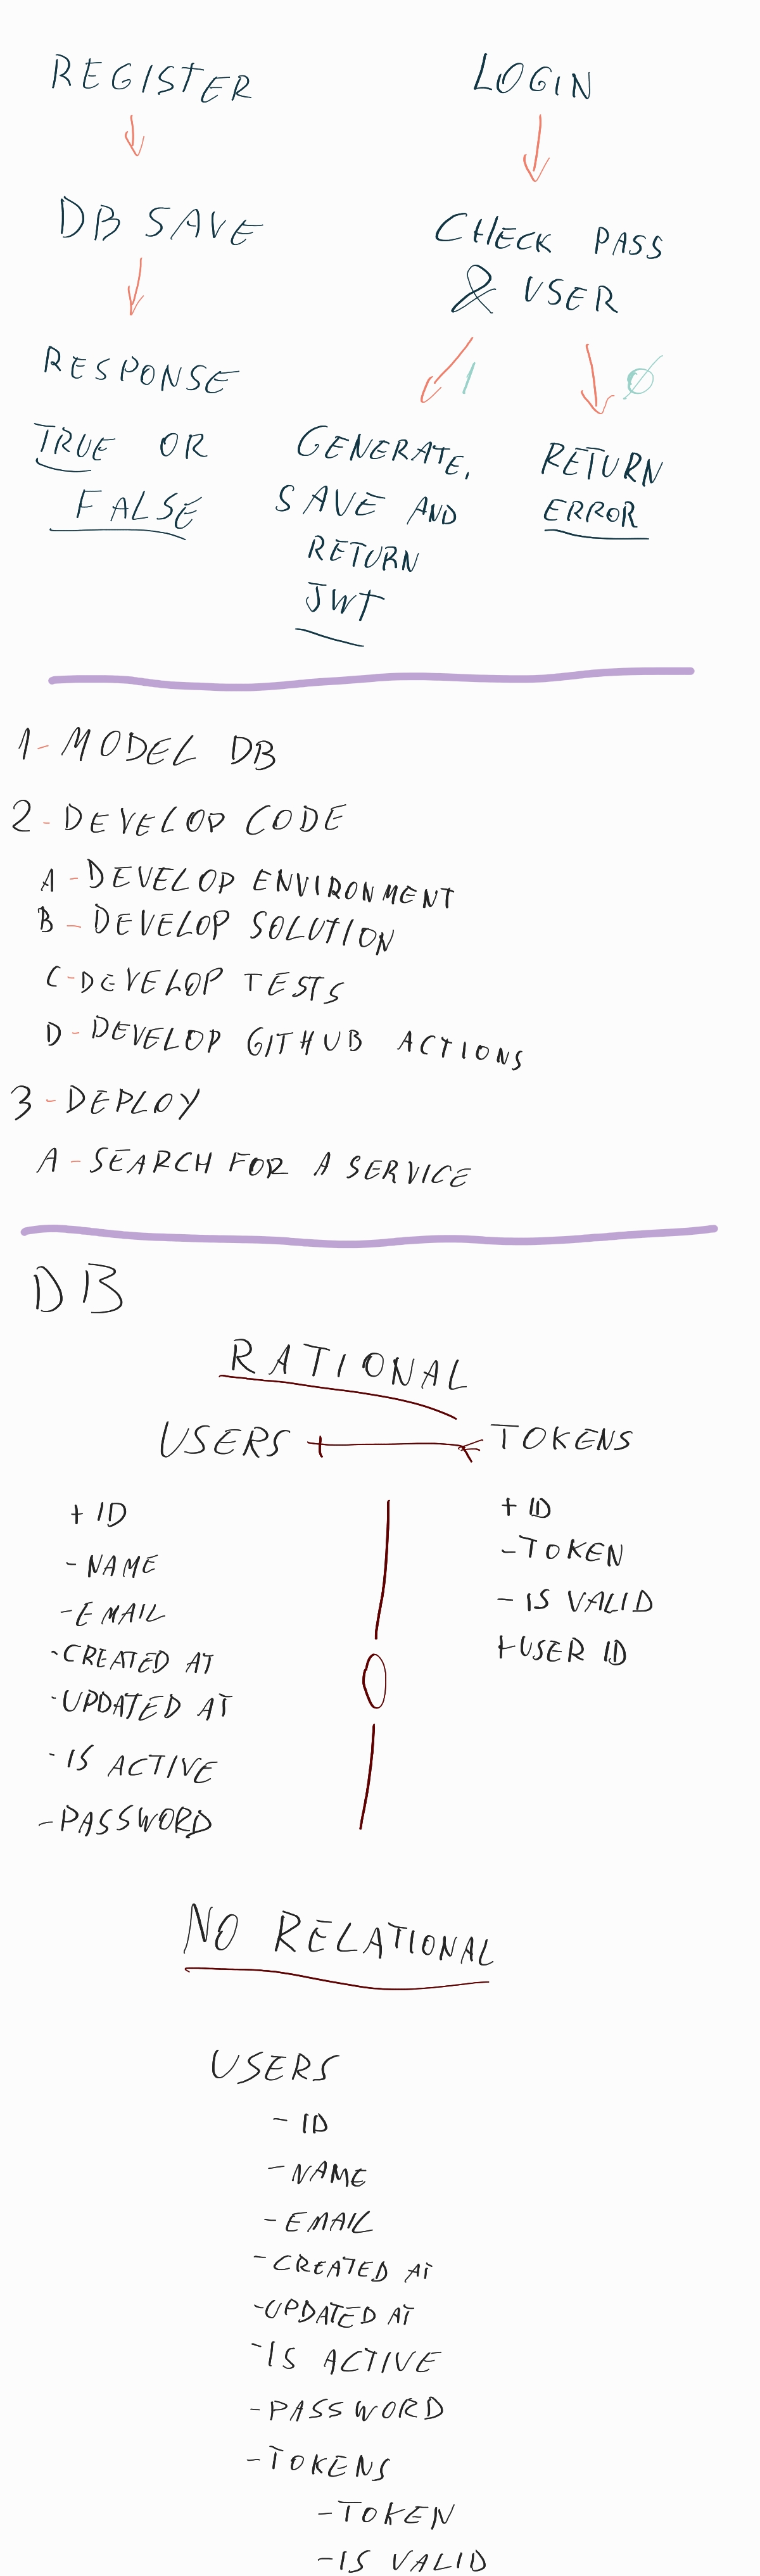 REGISTER
DB SAVE
RESPONSE
TRUE OR
FALSE
LOGIN
CHECK PASS
& USER
1
Ø
GENERATE,
SAVE AND
RETURN
JWT
RETURN
ERROR
1-MODEL DB
2-DEVELOP CODE
A-DEVELOP ENVIRONMENT
B-DEVELOP SOLUTION
C-DEVELOP TESTS
D-DEVELOP GITHUB ACTIONS
3-DEPLOY
A-SEARCH FOR A SERVICE
DB
RATIONAL
USERS
+ ID
- NAME
- EMAIL
- CREATED AT
- UPDATED AT
- IS ACTIVE
- PASSWORD
TOKENS
+ ID
- TOKEN
- IS VALID
+ USER ID
NO RELATIONAL
USERS
- ID
- NAME
- EMAIL
- CREATED AT
- UPDATED AT
- IS ACTIVE
- PASSWORD
- TOKENS
- TOKEN
- IS VALID